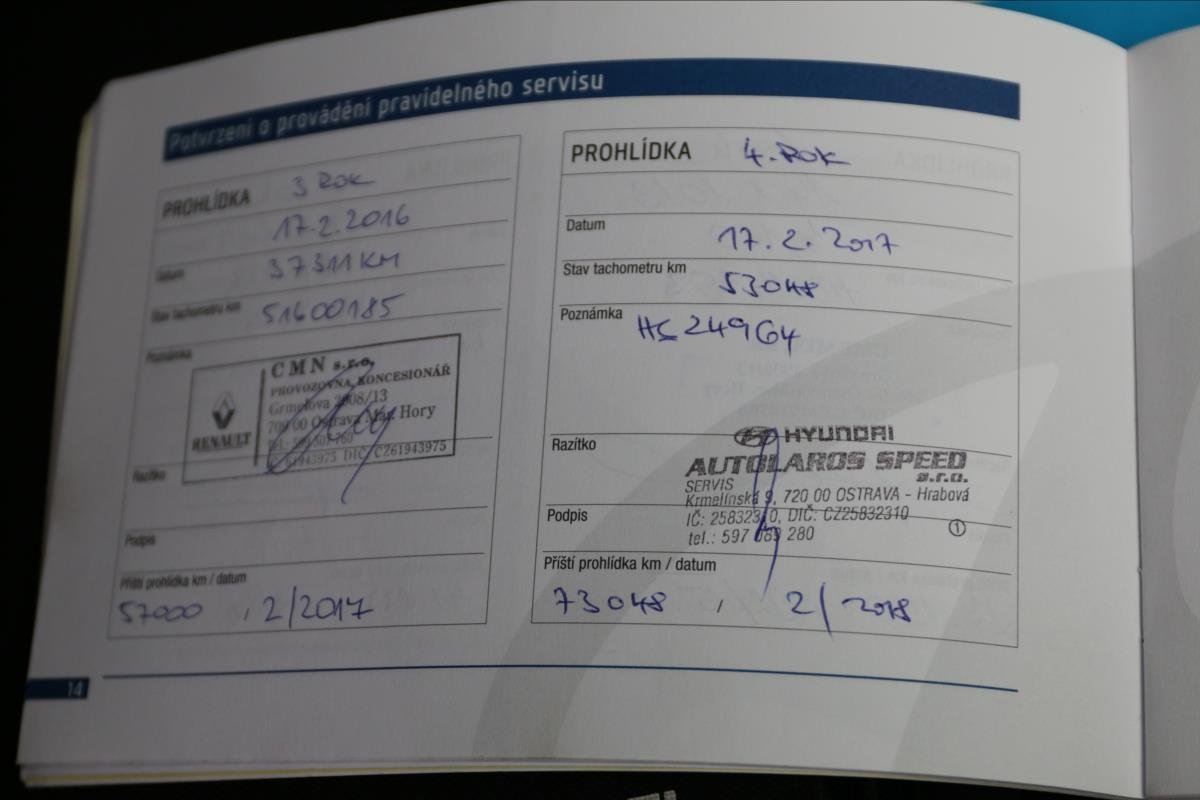 Potvrzení o provádění pravidelného servisu
PROHLÍDKA 3 ROK
17.2.2016
Datum
37311 KM
Stav tachometru km
51600185
Poznámka
CMN s.r.o.
PROVOZOVNA, KONCESIONÁŘ
Grmelova 2008/13
709 00 Ostrava Mar. Hory
RENAULT
61943975 DIČ: CZ61943975
Razítko
Podpis
Příští prohlídka km / datum
57000 , 2/2017
14
PROHLÍDKA 4. ROK
Datum
17. 2. 2017
Stav tachometru km
53048
Poznámka
Razítko
HYUNDAI
AUTOLAROS SPEED
s.r.o.
SERVIS
Krmelínská 9, 720 00 OSTRAVA - Hrabová
IČ: 25832310, DIČ: CZ25832310
1
Podpis
tel.: 597 089 280
Příští prohlídka km / datum
73048 / 2/ 2018